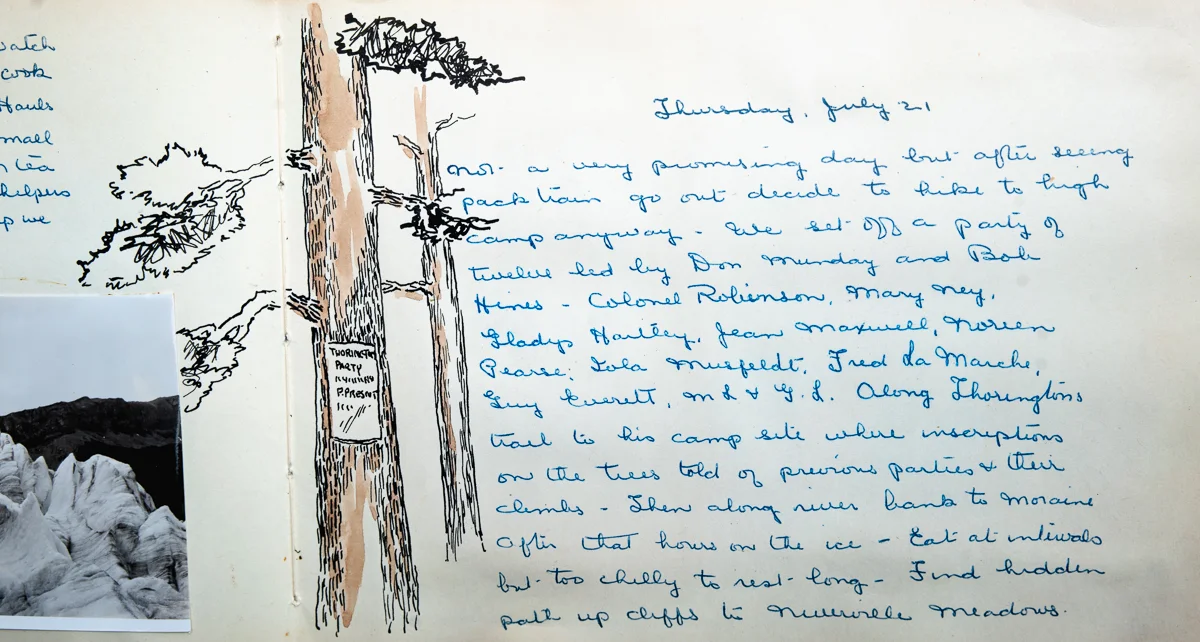 watch
cook
Hauls
small
n tea
helpers
up we
THORINGTON
PARTY
Thursday, July 21
not a very promising day but after seeing
pack train go out decide to hike to high
camp anyway - We set off a party of
twelve led by Don Munday and Bob
Hines - Colonel Robinson, Mary Ney,
Gladys Hartley, Jean Maxwell, Noreen
Pearse, Lola Musfeldt, Fred La Marche,
Guy Everett, M L & G. L. Along Thoringtons
trail to his camp site where inscriptions
on the trees told of previous parties & their
climbs - Then along river bank to moraine
After that hours on the ice - Eat at intervals
but too chilly to rest long - Find hidden
path up cliffs to Meadows.